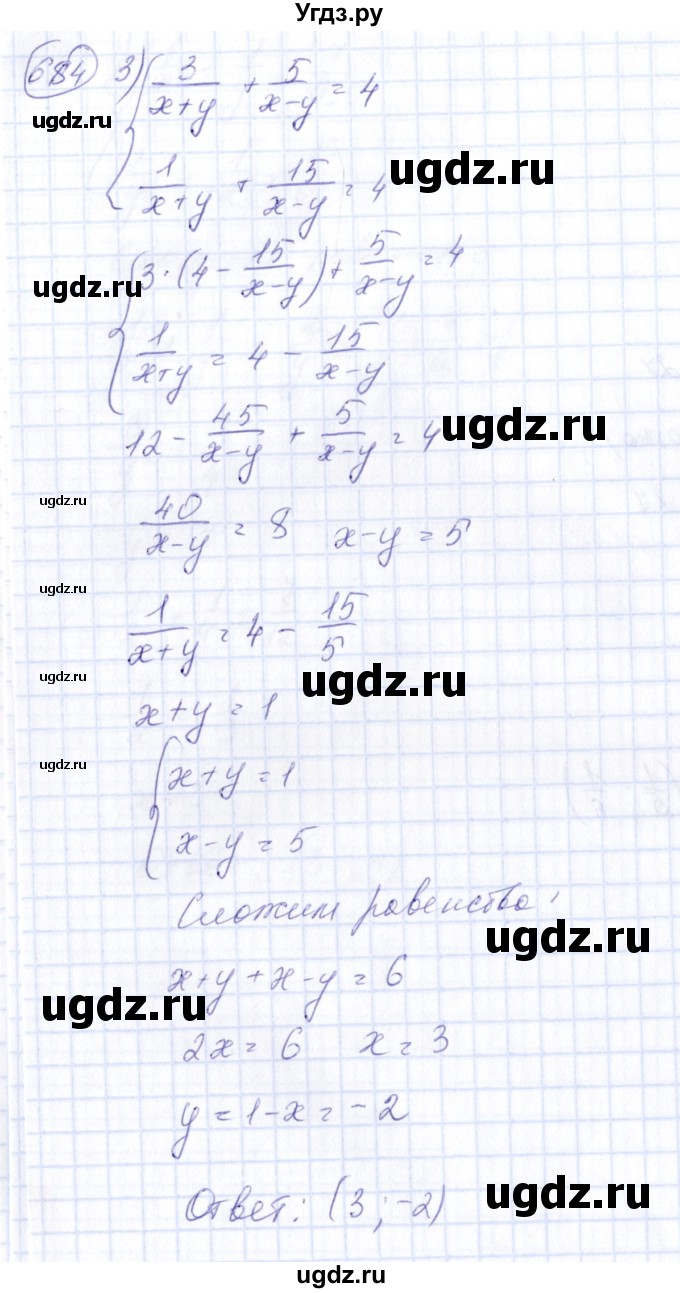 Угдз.ру
684 3) { 3/(x+y) + 5/(x-y) = 4
ugdz.ru
1/(x+y) + 15/(x-y) = 4
ugdz.ru
{ 3·(4 - 15/(x-y)) + 5/(x-y) = 4
ugdz.ru
1/(x+y) = 4 - 15/(x-y)
12 - 45/(x-y) + 5/(x-y) = 4
ugdz.ru
ugdz.ru
40/(x-y) = 8 x-y = 5
ugdz.ru
1/(x+y) = 4 - 15/5
ugdz.ru
ugdz.ru
x+y = 1
ugdz.ru
{ x+y = 1
x-y = 5
Сложим равенства:
ugdz.ru
x+y+x-y = 6
ugdz.ru
2x = 6 x = 3
y = 1-x = -2
Ответ: (3;-2)
ugdz.ru
ugdz.ru